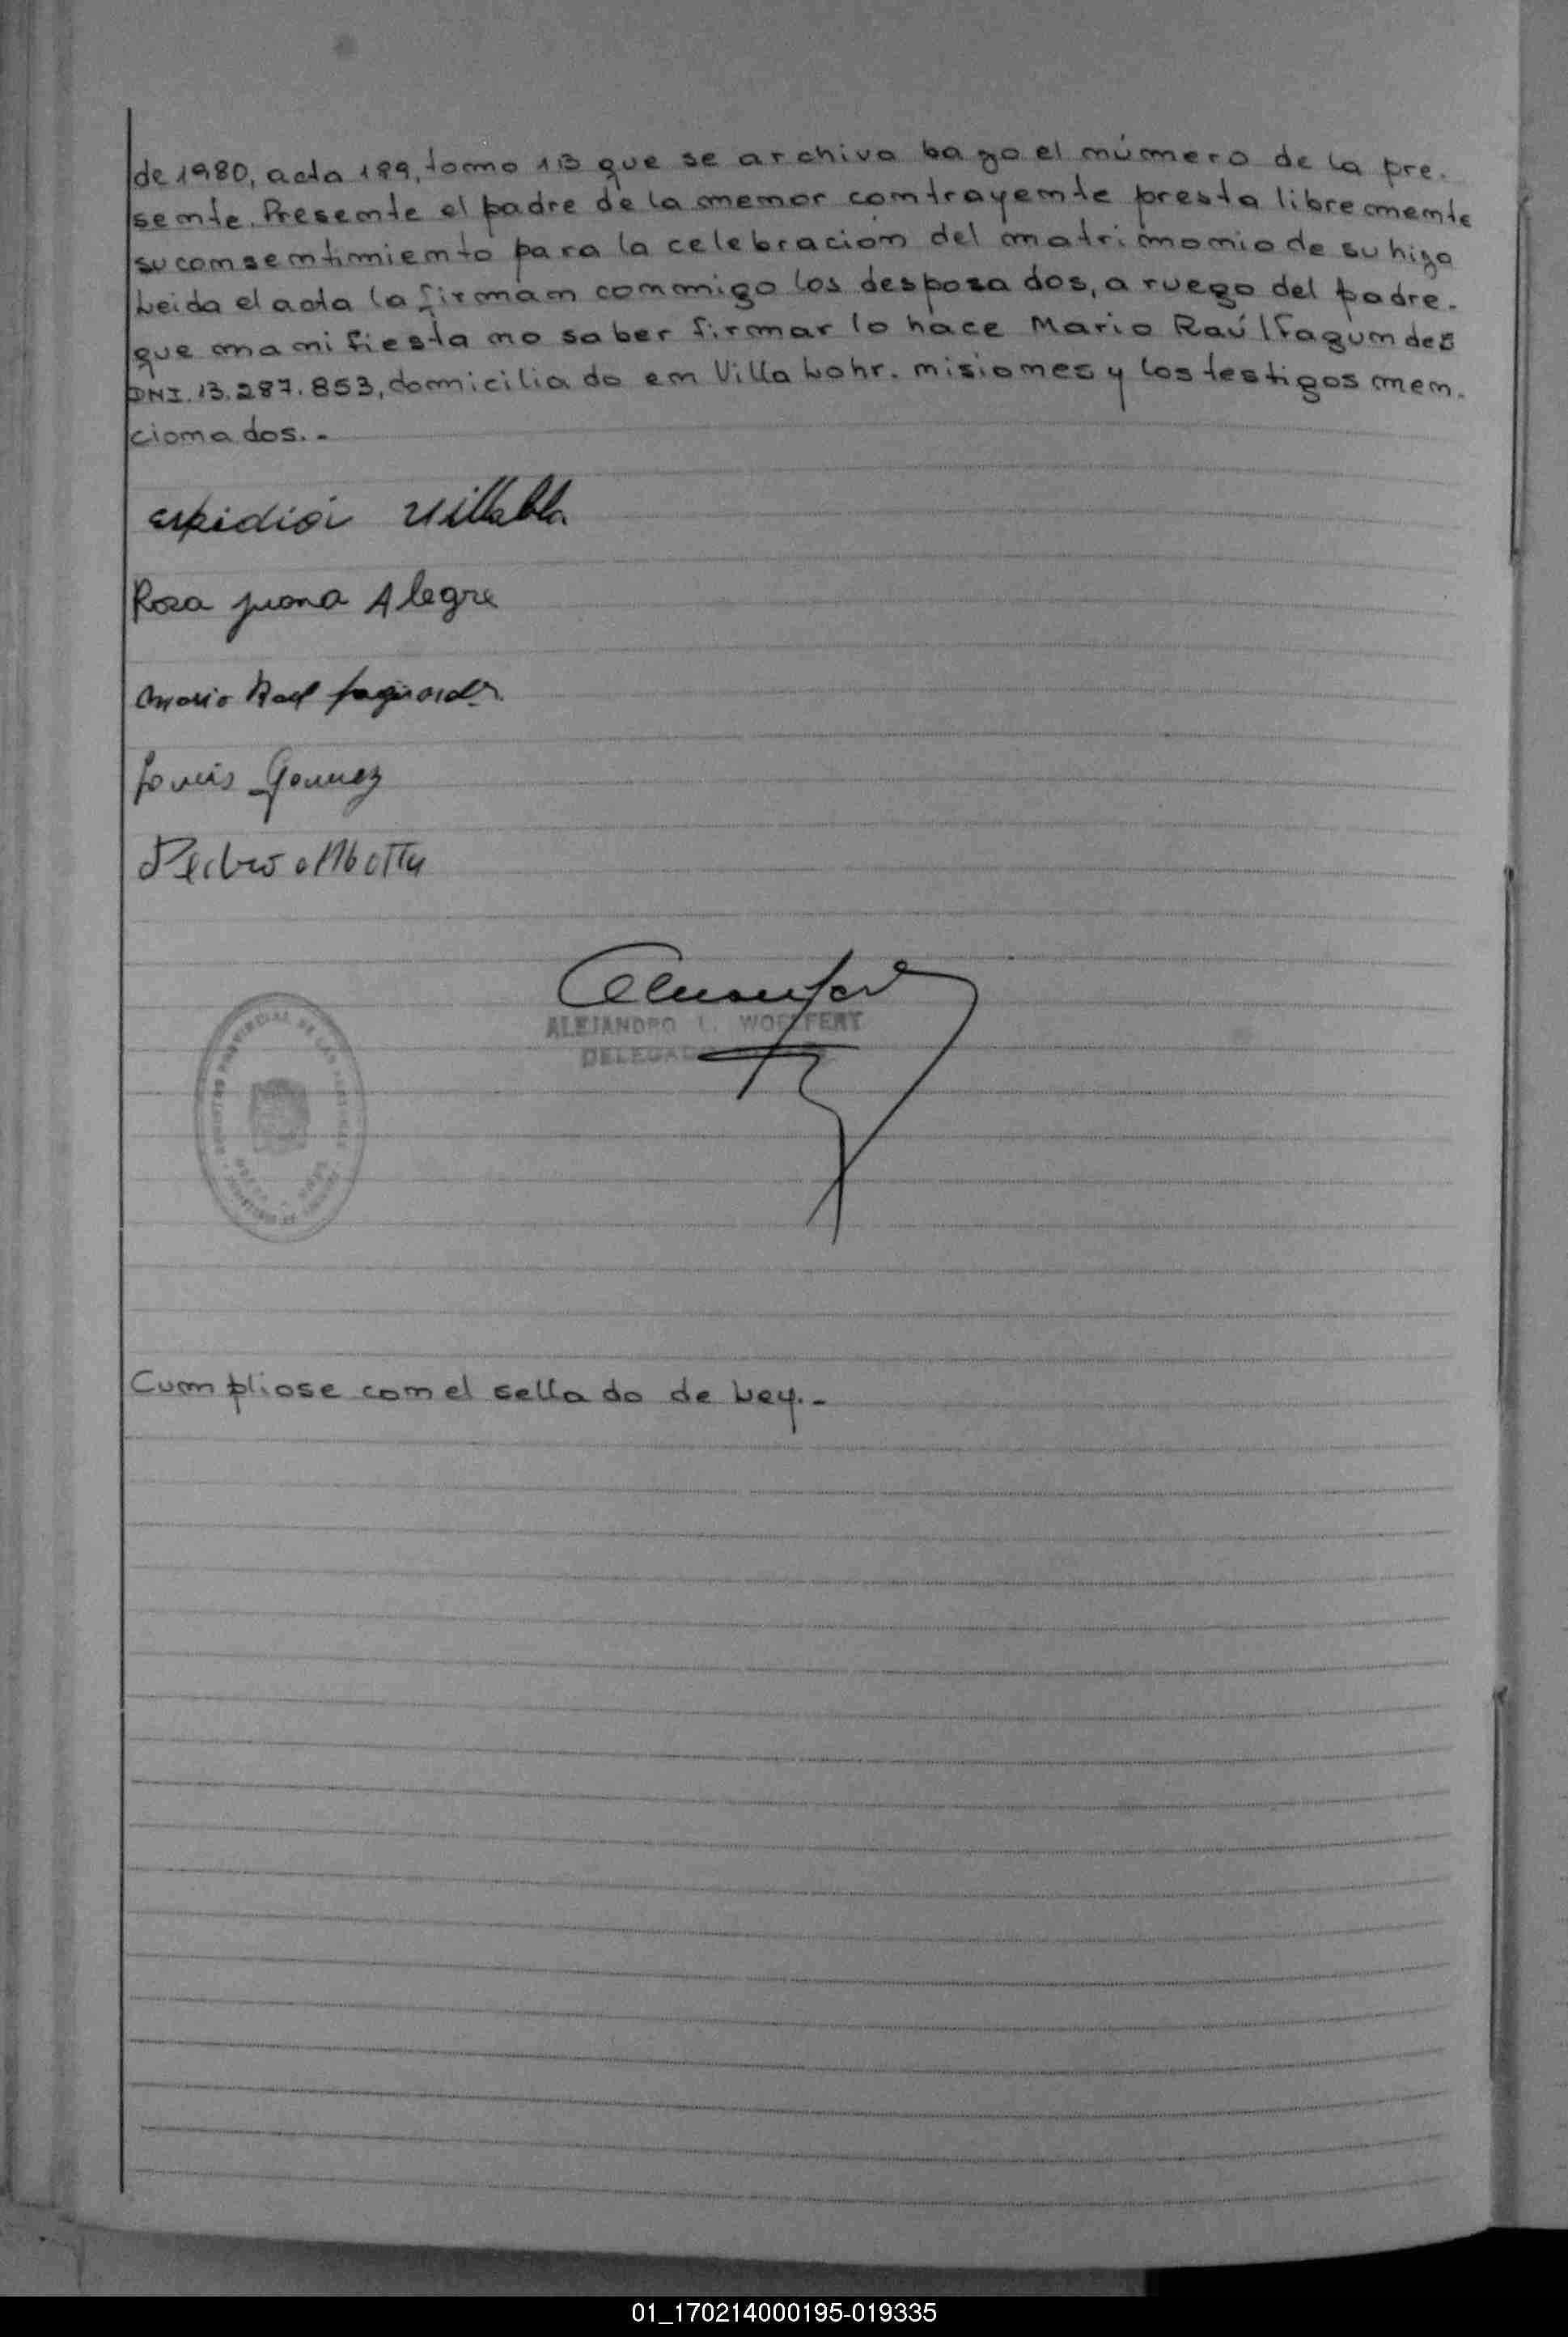 de 1980, acta 199, tomo 1B que se archiva bajo el número de la pre.
sente. Presente el padre de la menor contrayente presta libremente
su consentimiento para la celebración del matrimonio de su hija
Leida el acta la firman conmigo los desposados, a ruego del padre.
que manifiesta no saber firmar lo hace Mario Raúl Fagundes
DNI. 13.287.853, domiciliado en Villa Lohr. misiones y los testigos men.
cionados..-
Villalba
Rosa Juana Alegre
Mario Raul Fagundes
Gomez
Pedro
ALEJANDRO L. WOLFFERT
DELEGADO
PROVINCIAL DE LAS PERSONAS
Cumpliose con el sellado de Ley.-
01_170214000195-019335